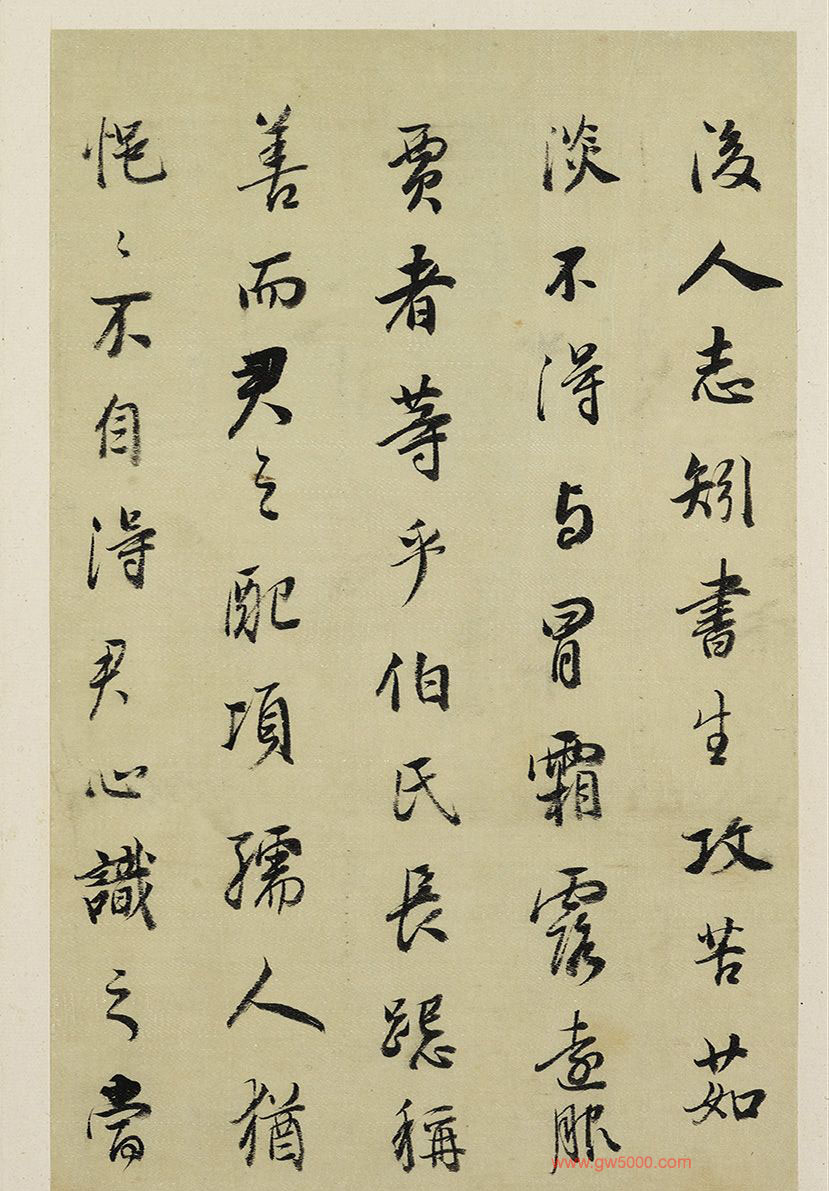 後人志矧書生攻苦茹
淡不得与冒霜露遠服
賈者等乎伯氏長跽稱
善而君之配項孺人猶
悒〻不自得君心識之嘗
www.gw5000.com